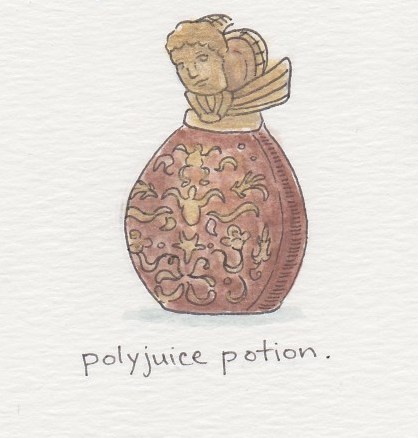 polyjuice potion.